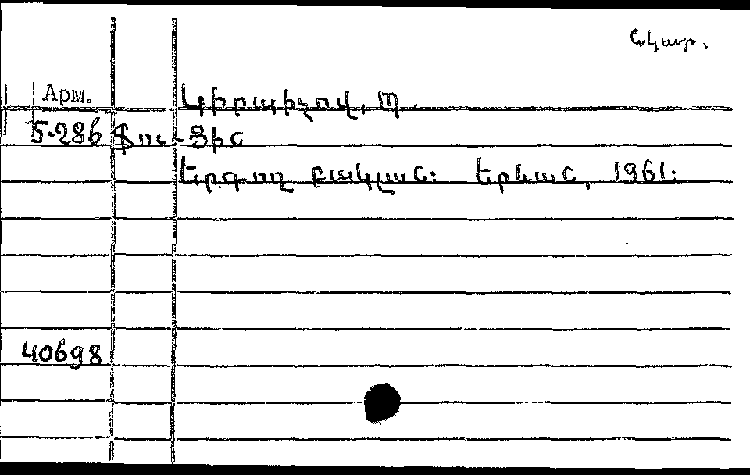 Նկար.
Арм.
Կիրակիչով, Պ.
5-286 Ֆու-Ցին
Երգող բակլան: Երևան, 1961:
40698